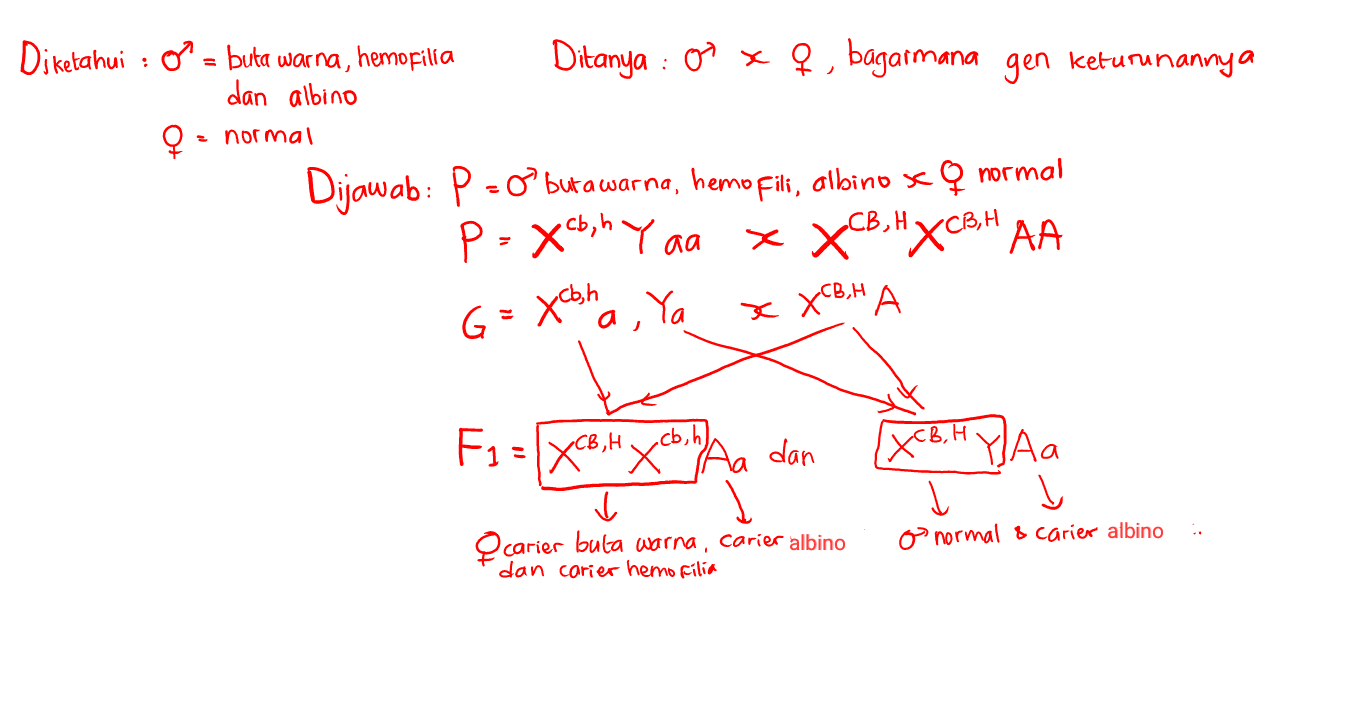 Diketahui : ♂ = buta warna, hemofilia
dan albino
♀ = normal
Ditanya : ♂ x ♀, bagaimana gen keturunannya
Dijawab : P = ♂ butawarna, hemofili, albino x ♀ normal
P = X^cb,h Y aa x X^CB,H X^CB,H AA
G = X^cb,h a, Ya x X^CB,H A
F1 = X^CB,H X^cb,h Aa dan X^CB,H Y Aa
♀ carier buta warna, carier albino
dan carier hemofilia
♂ normal & carier albino